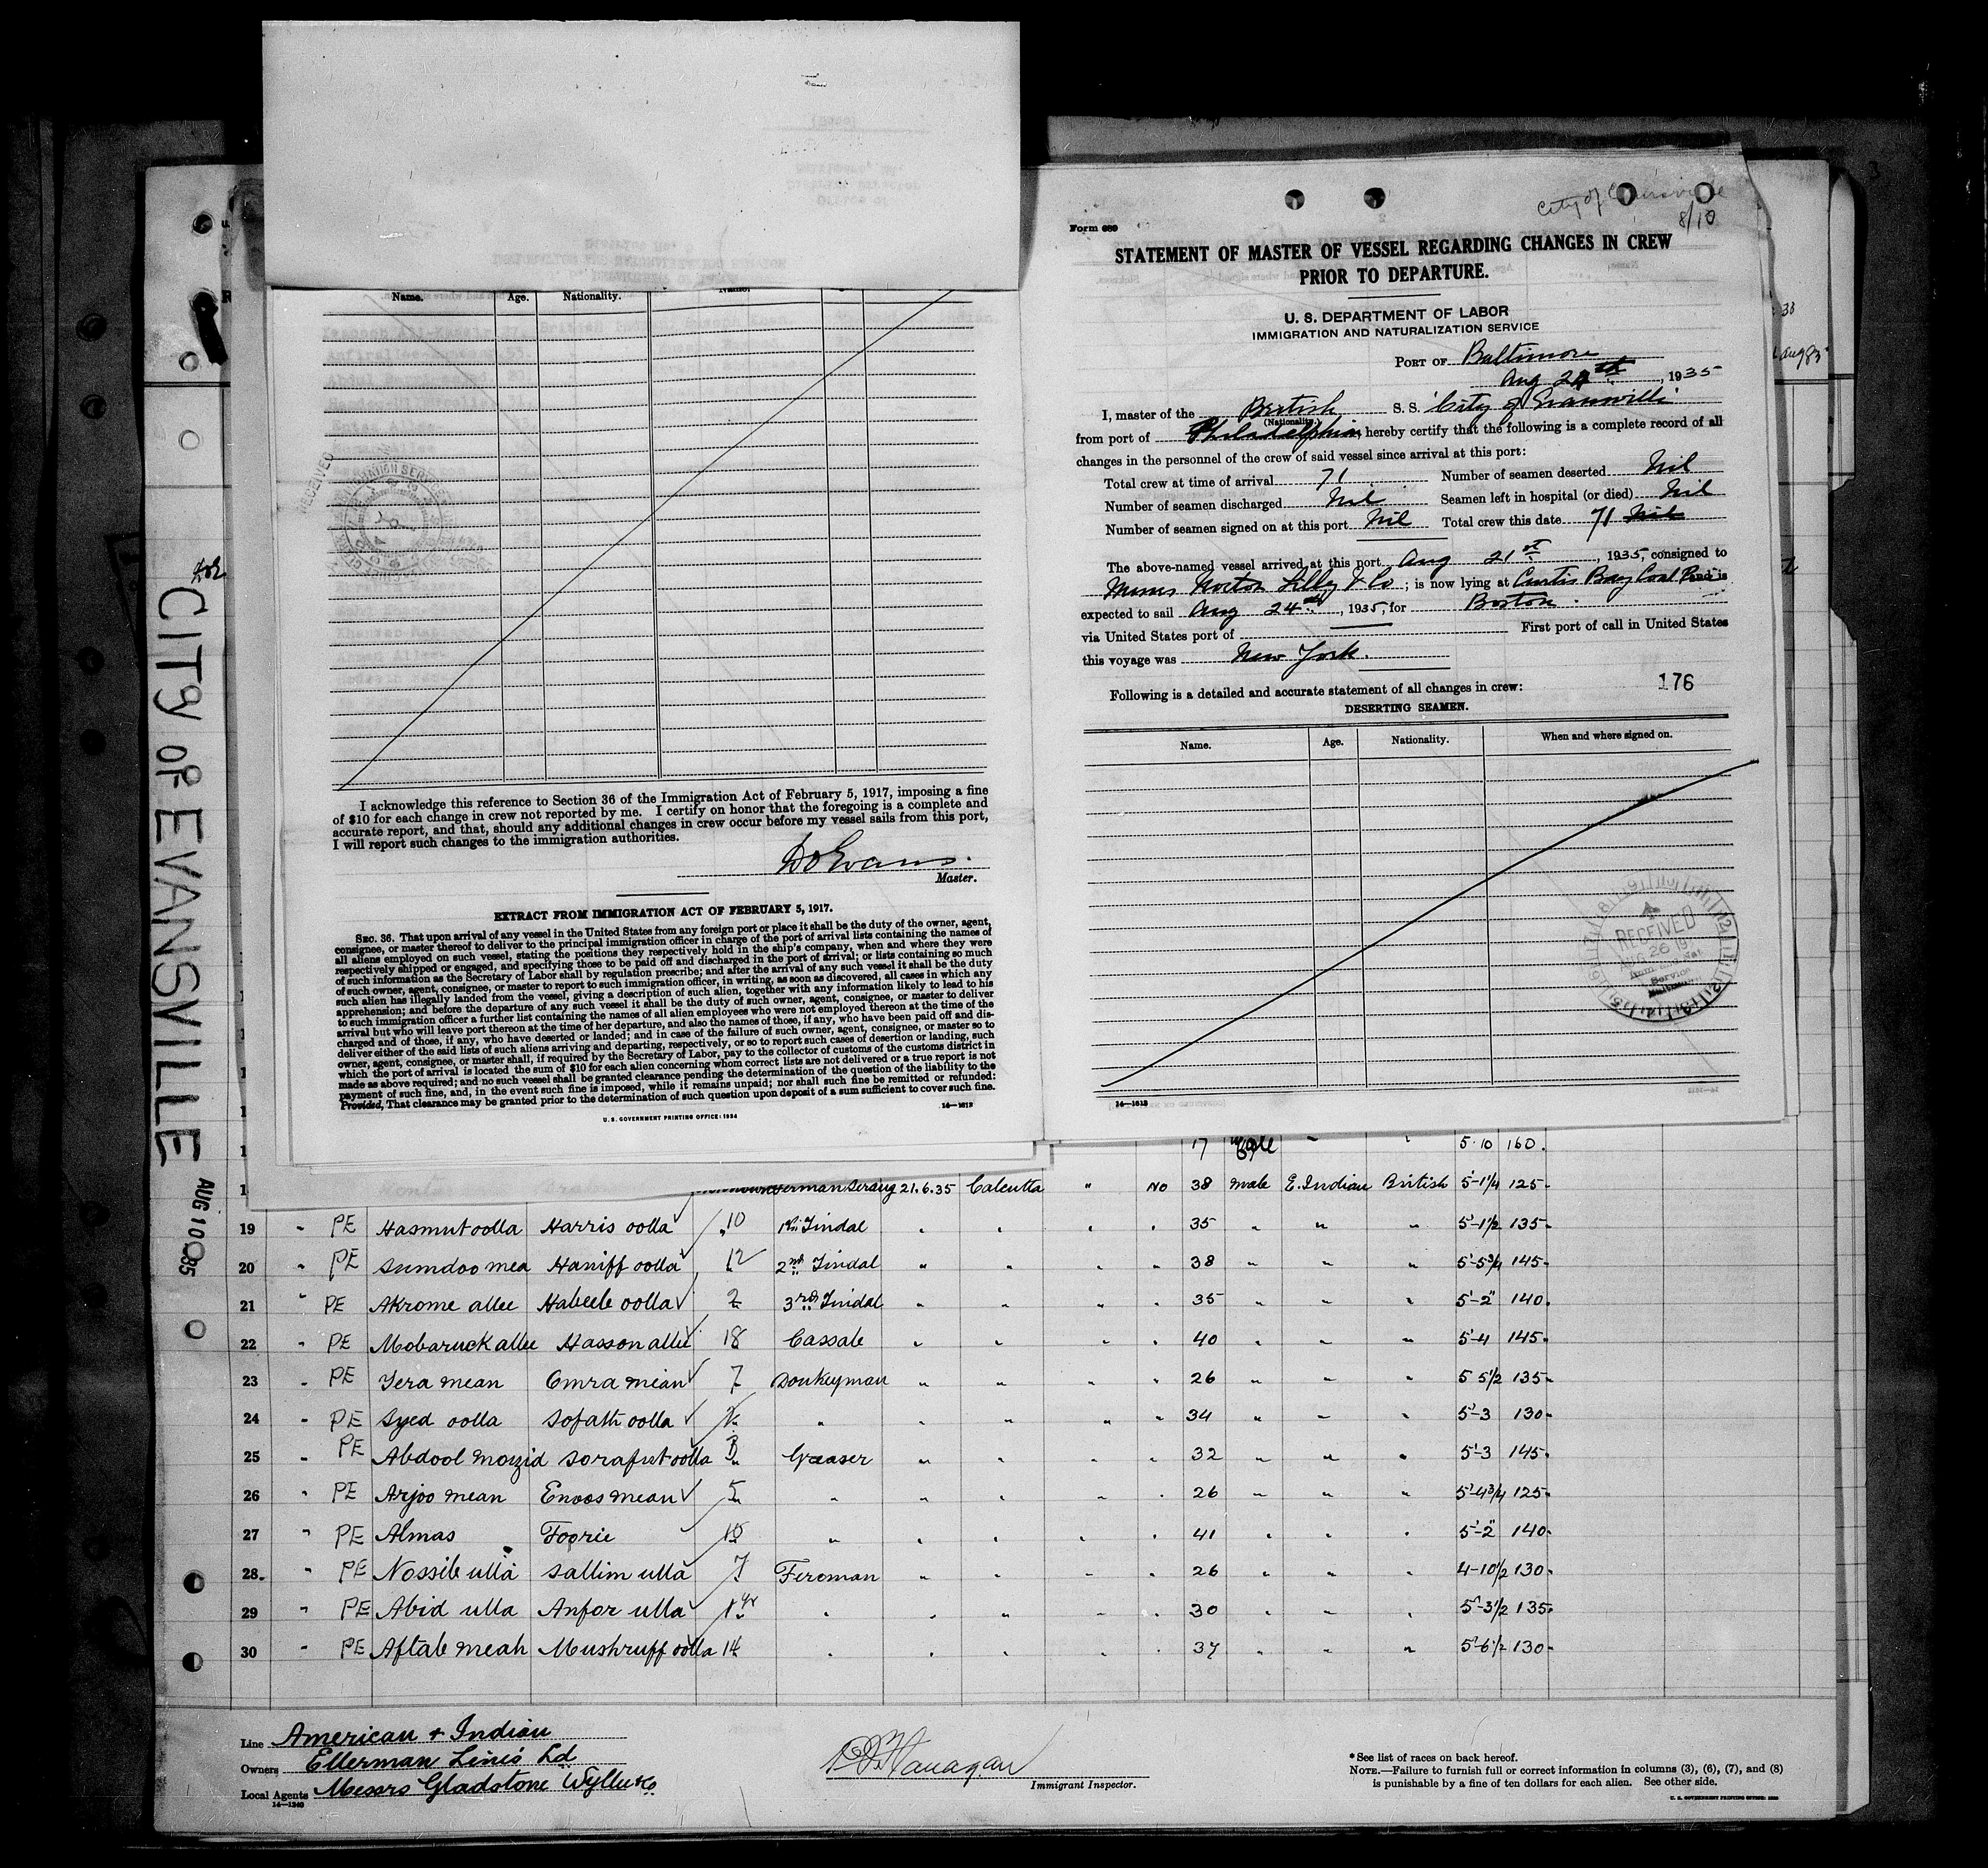 CITY OF EVANSVILLE
AUG 10 1935
Name. Age. Nationality.
I acknowledge this reference to Section 36 of the Immigration Act of February 5, 1917, imposing a fine
of $10 for each change in crew not reported by me. I certify on honor that the foregoing is a complete and
accurate report, and that, should any additional changes in crew occur before my vessel sails from this port,
I will report such changes to the immigration authorities.
DOEvans.
Master.
EXTRACT FROM IMMIGRATION ACT OF FEBRUARY 5, 1917.
SEC. 36. That upon arrival of any vessel in the United States from any foreign port or place it shall be the duty of the owner, agent,
consignee, or master thereof to deliver to the principal immigration officer in charge of the port of arrival lists containing the names of
all aliens employed on such vessel, stating the positions they respectively hold in the ship's company, when and where they were
respectively shipped or engaged, and specifying those to be paid off and discharged in the port of arrival; or lists containing so much
of such information as the Secretary of Labor shall by regulation prescribe; and after the arrival of any such vessel it shall be the duty
of such owner, agent, consignee, or master to report to such immigration officer, in writing, as soon as discovered, all cases in which any
such alien has illegally landed from the vessel, giving a description of such alien, together with any information likely to lead to his
apprehension; and before the departure of any such vessel it shall be the duty of such owner, agent, consignee, or master to deliver
to such immigration officer a further list containing the names of all alien employees who were not employed thereon at the time of the
arrival but who will leave port thereon at the time of her departure, and also the names of those, if any, who have been paid off and dis-
charged and of those, if any, who have deserted or landed; and in case of the failure of such owner, agent, consignee, or master so to
deliver either of the said lists of such aliens arriving and departing, respectively, or so to report such cases of desertion or landing, such
owner, agent, consignee, or master shall, if required by the Secretary of Labor, pay to the collector of customs of the customs district in
which the port of arrival is located the sum of $10 for each alien concerning whom correct lists are not delivered or a true report is not
made as above required; and no such vessel shall be granted clearance pending the determination of the question of the liability to the
payment of such fine, and, in the event such fine is imposed, while it remains unpaid; nor shall such fine be remitted or refunded:
Provided, That clearance may be granted prior to the determination of such question upon deposit of a sum sufficient to cover such fine.
U. S. GOVERNMENT PRINTING OFFICE: 1934 14—1613
City of Evansville
8/10
Form 689
STATEMENT OF MASTER OF VESSEL REGARDING CHANGES IN CREW
PRIOR TO DEPARTURE.
U. S. DEPARTMENT OF LABOR
IMMIGRATION AND NATURALIZATION SERVICE
PORT OF Baltimore
Aug 24th, 1935
I, master of the British S. S. City of Evansville
(Nationality.)
from port of Philadelphia, hereby certify that the following is a complete record of all
changes in the personnel of the crew of said vessel since arrival at this port:
Total crew at time of arrival 71 Number of seamen deserted Nil
Number of seamen discharged Nil Seamen left in hospital (or died) Nil
Number of seamen signed on at this port Nil Total crew this date 71 Nil
The above-named vessel arrived at this port Aug 21st, 1935, consigned to
Messrs Norton Lilly & Co; is now lying at Curtis Bay Coal Pier and is
expected to sail Aug 24th, 1935, for Boston.
via United States port of First port of call in United States
this voyage was New York.
Following is a detailed and accurate statement of all changes in crew: 176
DESERTING SEAMEN.
Name. Age. Nationality. When and where signed on.
RECEIVED
AUG 26 19
14—1613
17 male " " 5-10 160.
Serang 21.6.35 Calcutta " No 38 male E.Indian British 5'-1 1/4 125-
19 " PE Hasmut oolla Harris oolla 10 1st Tindal " " " " 35 " " " 5'-1 1/2 135-
20 " PE Sumdoo mea Haniff oolla 12 2nd Tindal " " " " 38 " " " 5'-5 3/4 145-
21 " PE Akrome allee Habeeb oolla 2 3rd Tindal " " " " 35 " " " 5'-2" 140.
22 " PE Mobaruck allee Hasson allee 18 Cassab " " " " 40 " " " 5'-4 145-
23 " PE Yera mean Omra mean 7 Donkeyman " " " " 26 " " " 5 5 1/2 135-
24 " PE Syed oolla Sofath oolla " " " " " 34 " " " 5'-3 130-
25 " PE Abdool mozid Sorafut oolla Greaser " " " " 32 " " " 5'-3 145-
26 " PE Arjoo mean Enoos mean 5 " " " " " 26 " " " 5'-4 3/4 125-
27 " PE Almas Foorie 15 " " " " " 41 " " " 5'-2" 140-
28. " PE Nossib ulla Sallim ulla 7 Fireman " " " " 26 " " " 4-10 1/2 130-
29 " PE Abid ulla Anfor ulla 1 yr " " " " " 30 " " " 5'-3 1/2 135-
30 " PE Aftab meah Mushruff oolla 14 " " " " " 37 " " " 5'-6 1/2 130-
Line American & Indian
Owners Ellerman Lines Ld
Local Agents Messrs Gladstone Wyllie & Co.
14—1240
Flanagan
Immigrant Inspector.
*See list of races on back hereof.
NOTE.—Failure to furnish full or correct information in columns (3), (6), (7), and (8)
is punishable by a fine of ten dollars for each alien. See other side.